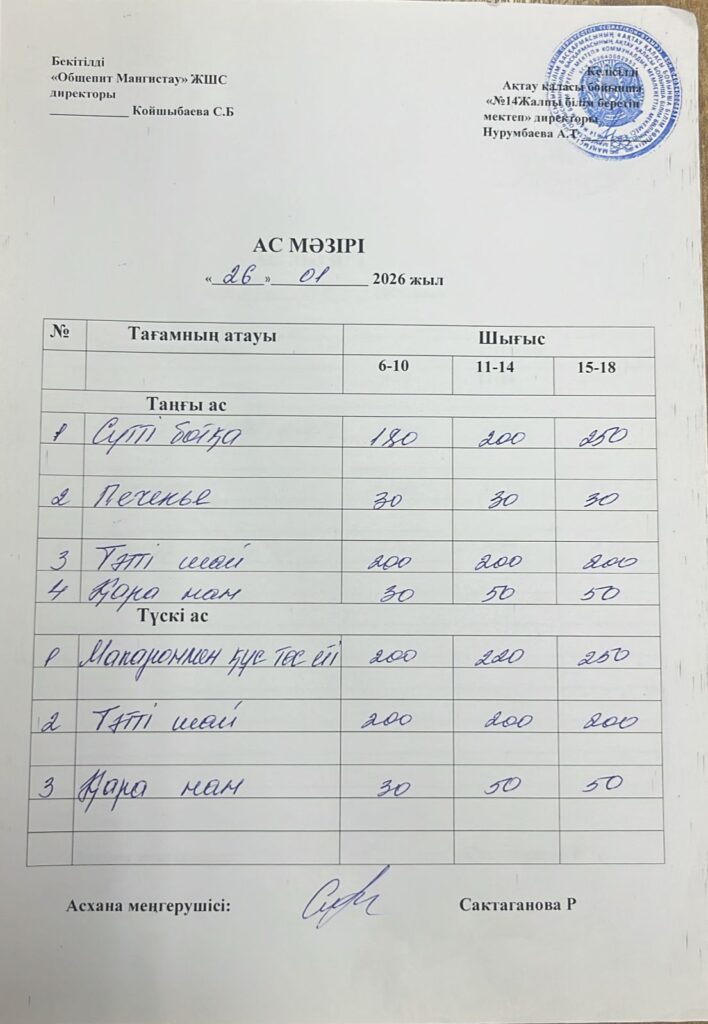 Бекітілді
«Общепит Мангистау» ЖШС
директоры
____________ Койшыбаева С.Б
Келісілді
Ақтау қаласы бойынша
«№14Жалпы білім беретін
мектеп» директоры
Нурумбаева А.Т
АС МӘЗІРІ
«26» 01 2026 жыл
№ Тағамның атауы Шығыс
6-10 11-14 15-18
Таңғы ас
1 Сүтті ботқа 180 200 250
2 Печенье 30 30 30
3 Тәтті шай 200 200 200
4 Қара нан 30 50 50
Түскі ас
1 Макаронмен құс төс еті 200 220 250
2 Тәтті шай 200 200 200
3 Қара нан 30 50 50
Асхана меңгерушісі: Сактаганова Р